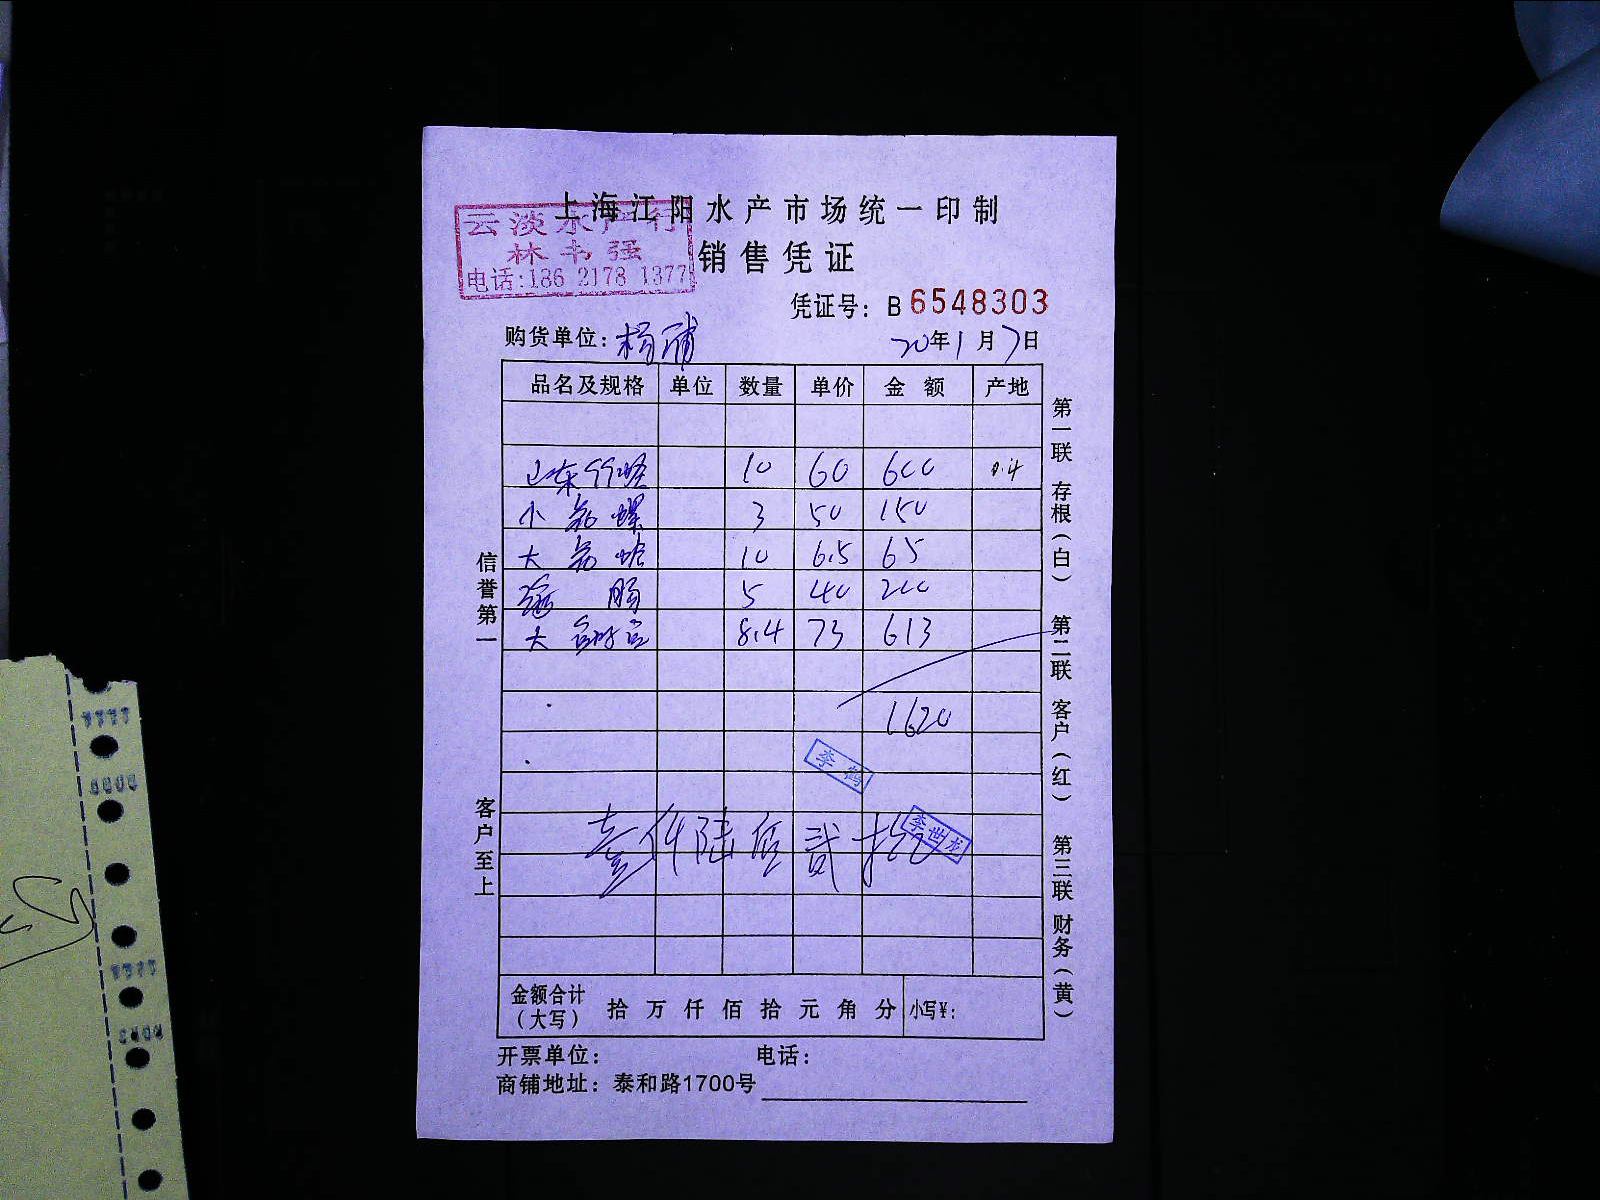 上海江阳水产市场统一印制
云淡水产行
林韦强
电话:186 2178 1377
销售凭证
凭证号: B 6548303
购货单位: 杨浦
20年1月7日
品名及规格 单位 数量 单价 金额 产地
山东 10 60 600 0.4
小 螺 3 50 150
大 蛤 10 6.5 65
海肠 5 40 200
大 8.4 73 613
1620
李鹤
壹仟陆佰贰拾
李世龙
金额合计(大写) 拾万仟佰拾元角分 小写¥:
开票单位: 电话:
商铺地址: 泰和路1700号
信誉第一 客户至上
第一联 存根(白) 第二联 客户(红) 第三联 财务(黄)